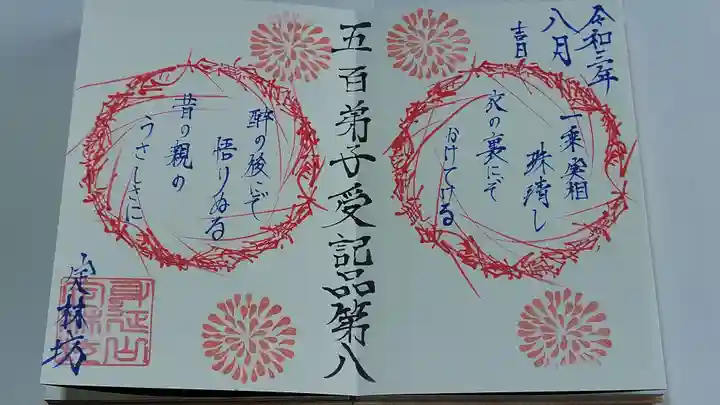 令和三年
八月
吉日
珠清し
衣の裏にぞ
かけてける
五百弟子受記品第八
酔の後にぞ
悟りぬる
昔の親の
うさしさに
林坊
身延山